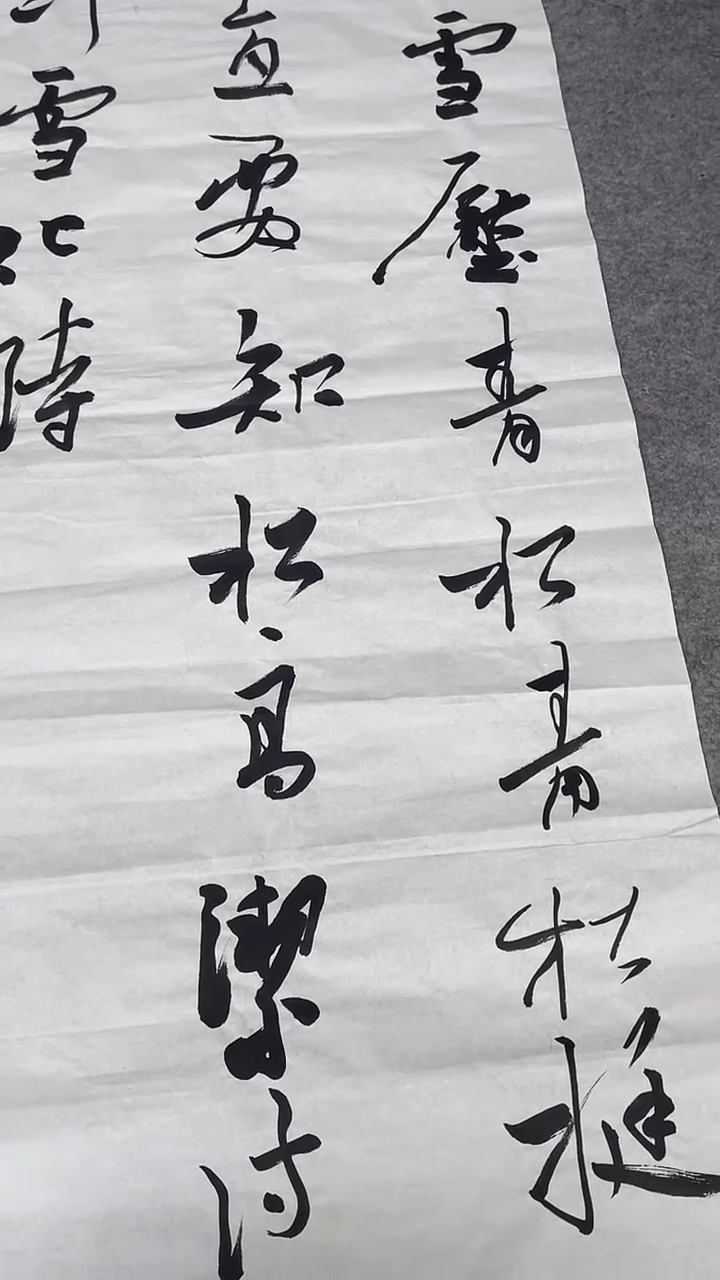 雪壓青松青松挺
直要知松高潔待
雪化時